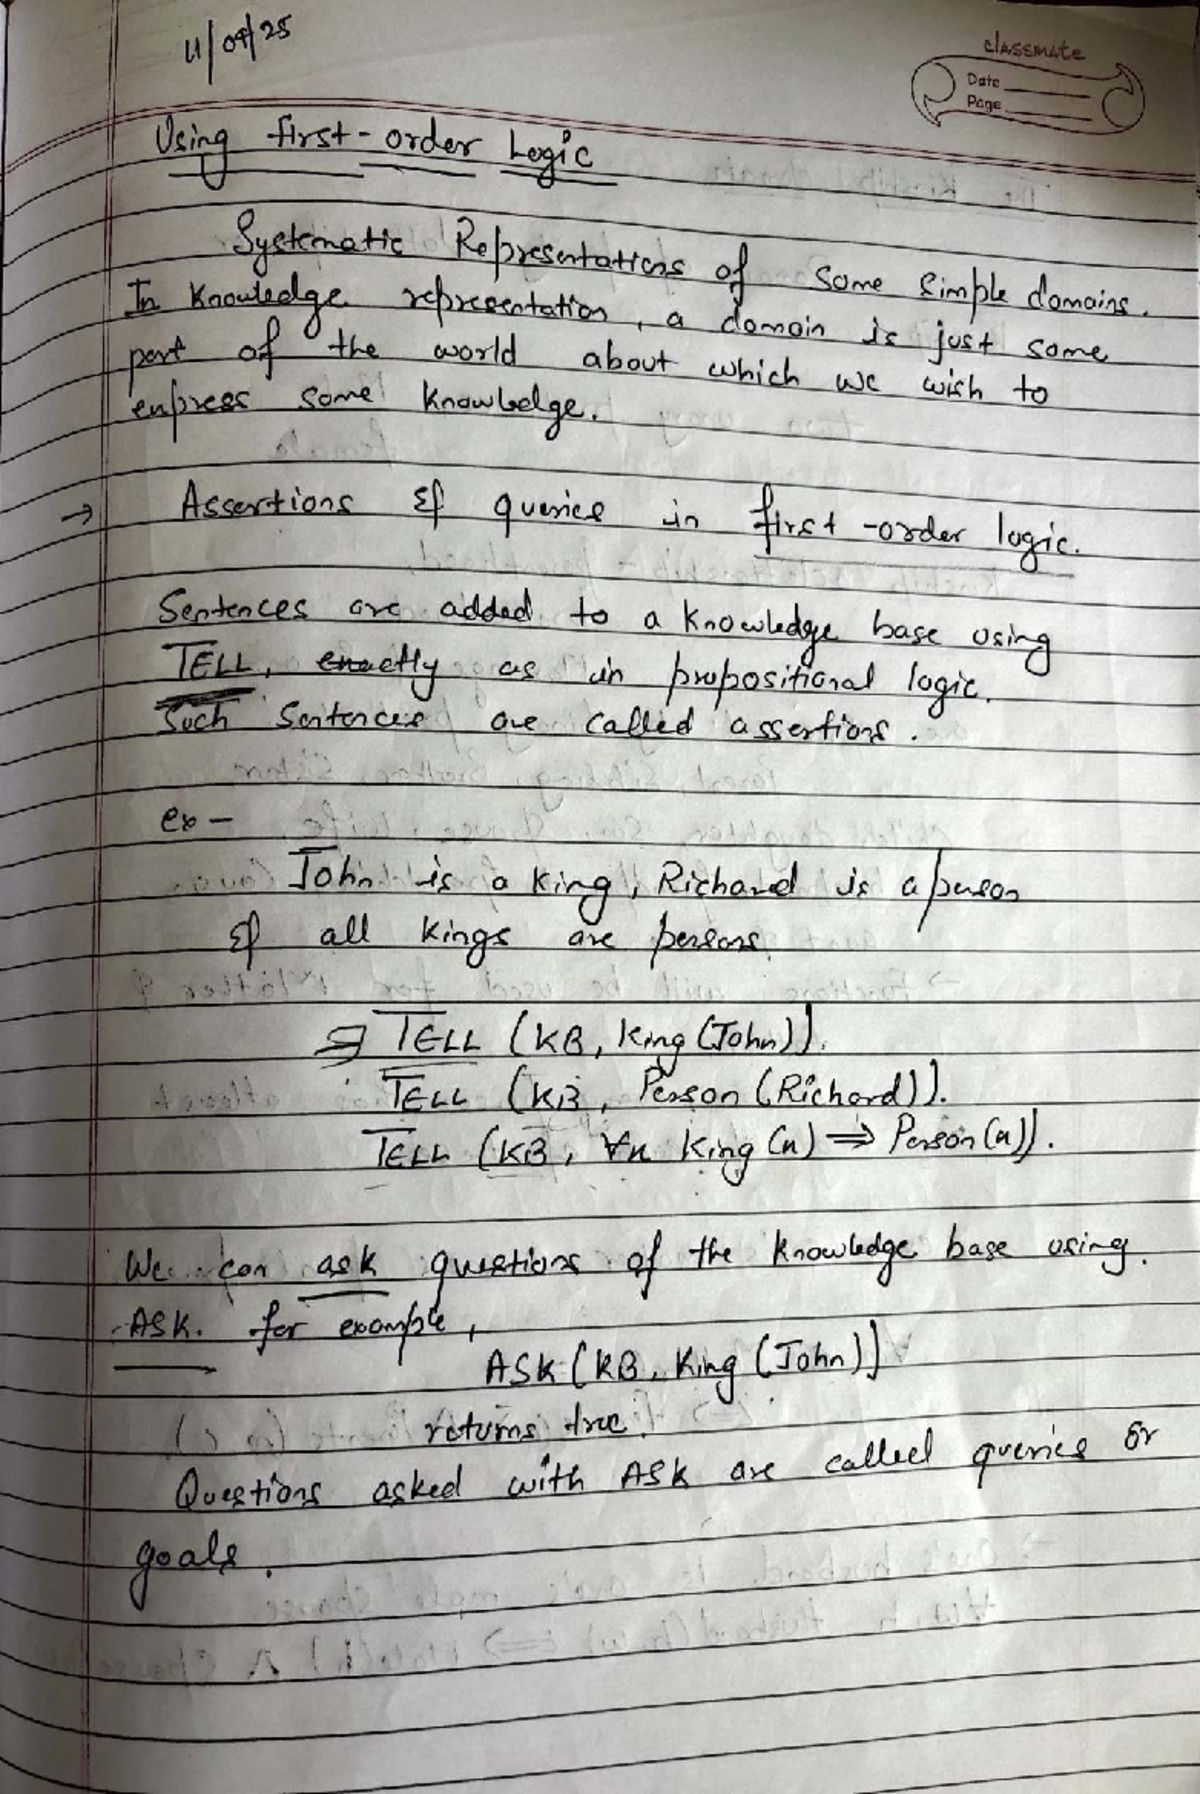 11/09/25
classmate
Date
Page
Using first-order Logic
Systematic Representations of some simple domains.
In Knowledge representation, a domain is just some
part of the world about which we wish to
express some knowledge.
→ Assertions & queries in first-order logic.
Sentences are added to a knowledge base using
TELL, exactly as in propositional logic.
Such Sentences are called assertions.
ex-
John is a King, Richard is a person
& all kings are persons.
⇒ TELL (KB, King (John)).
TELL (KB, Person (Richard)).
TELL (KB, ∀x King (x) ⇒ Person (x)).
We can ask questions of the knowledge base using.
ASK. for example,
ASK (KB, King (John))
returns true.
Questions asked with ASK are called queries or
goals.